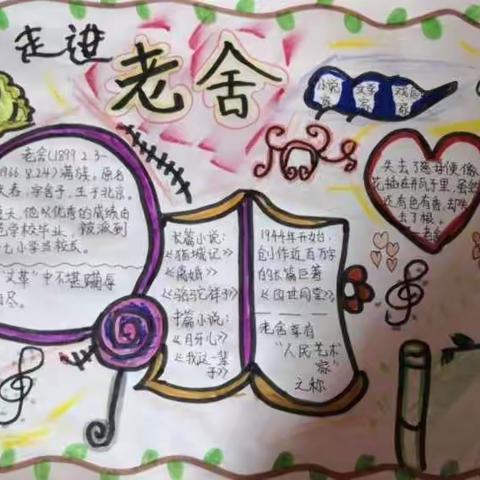 走进
老舍
小说家
文学家
戏剧家
老舍(1899.2.3-
1966.8.24)满族。原名
庆春,字舍予,生于北京。
夏天,他以优秀的成绩由
范学校毕业,被派到
七小学当校长。
"文革"中不堪蹂辱
自尽。
长篇小说:
《猫城记》
《离婚》
《骆驼祥子》
中篇小说:
《月牙儿》
《我这一辈
子》
1944年开始,
创作近百万字
的长篇巨著
《四世同堂》
老舍享有
"人民艺术
家"
之称
失去了慈母便像
花插在瓶子里,虽然
还有色有香,却失
去了根
—老舍